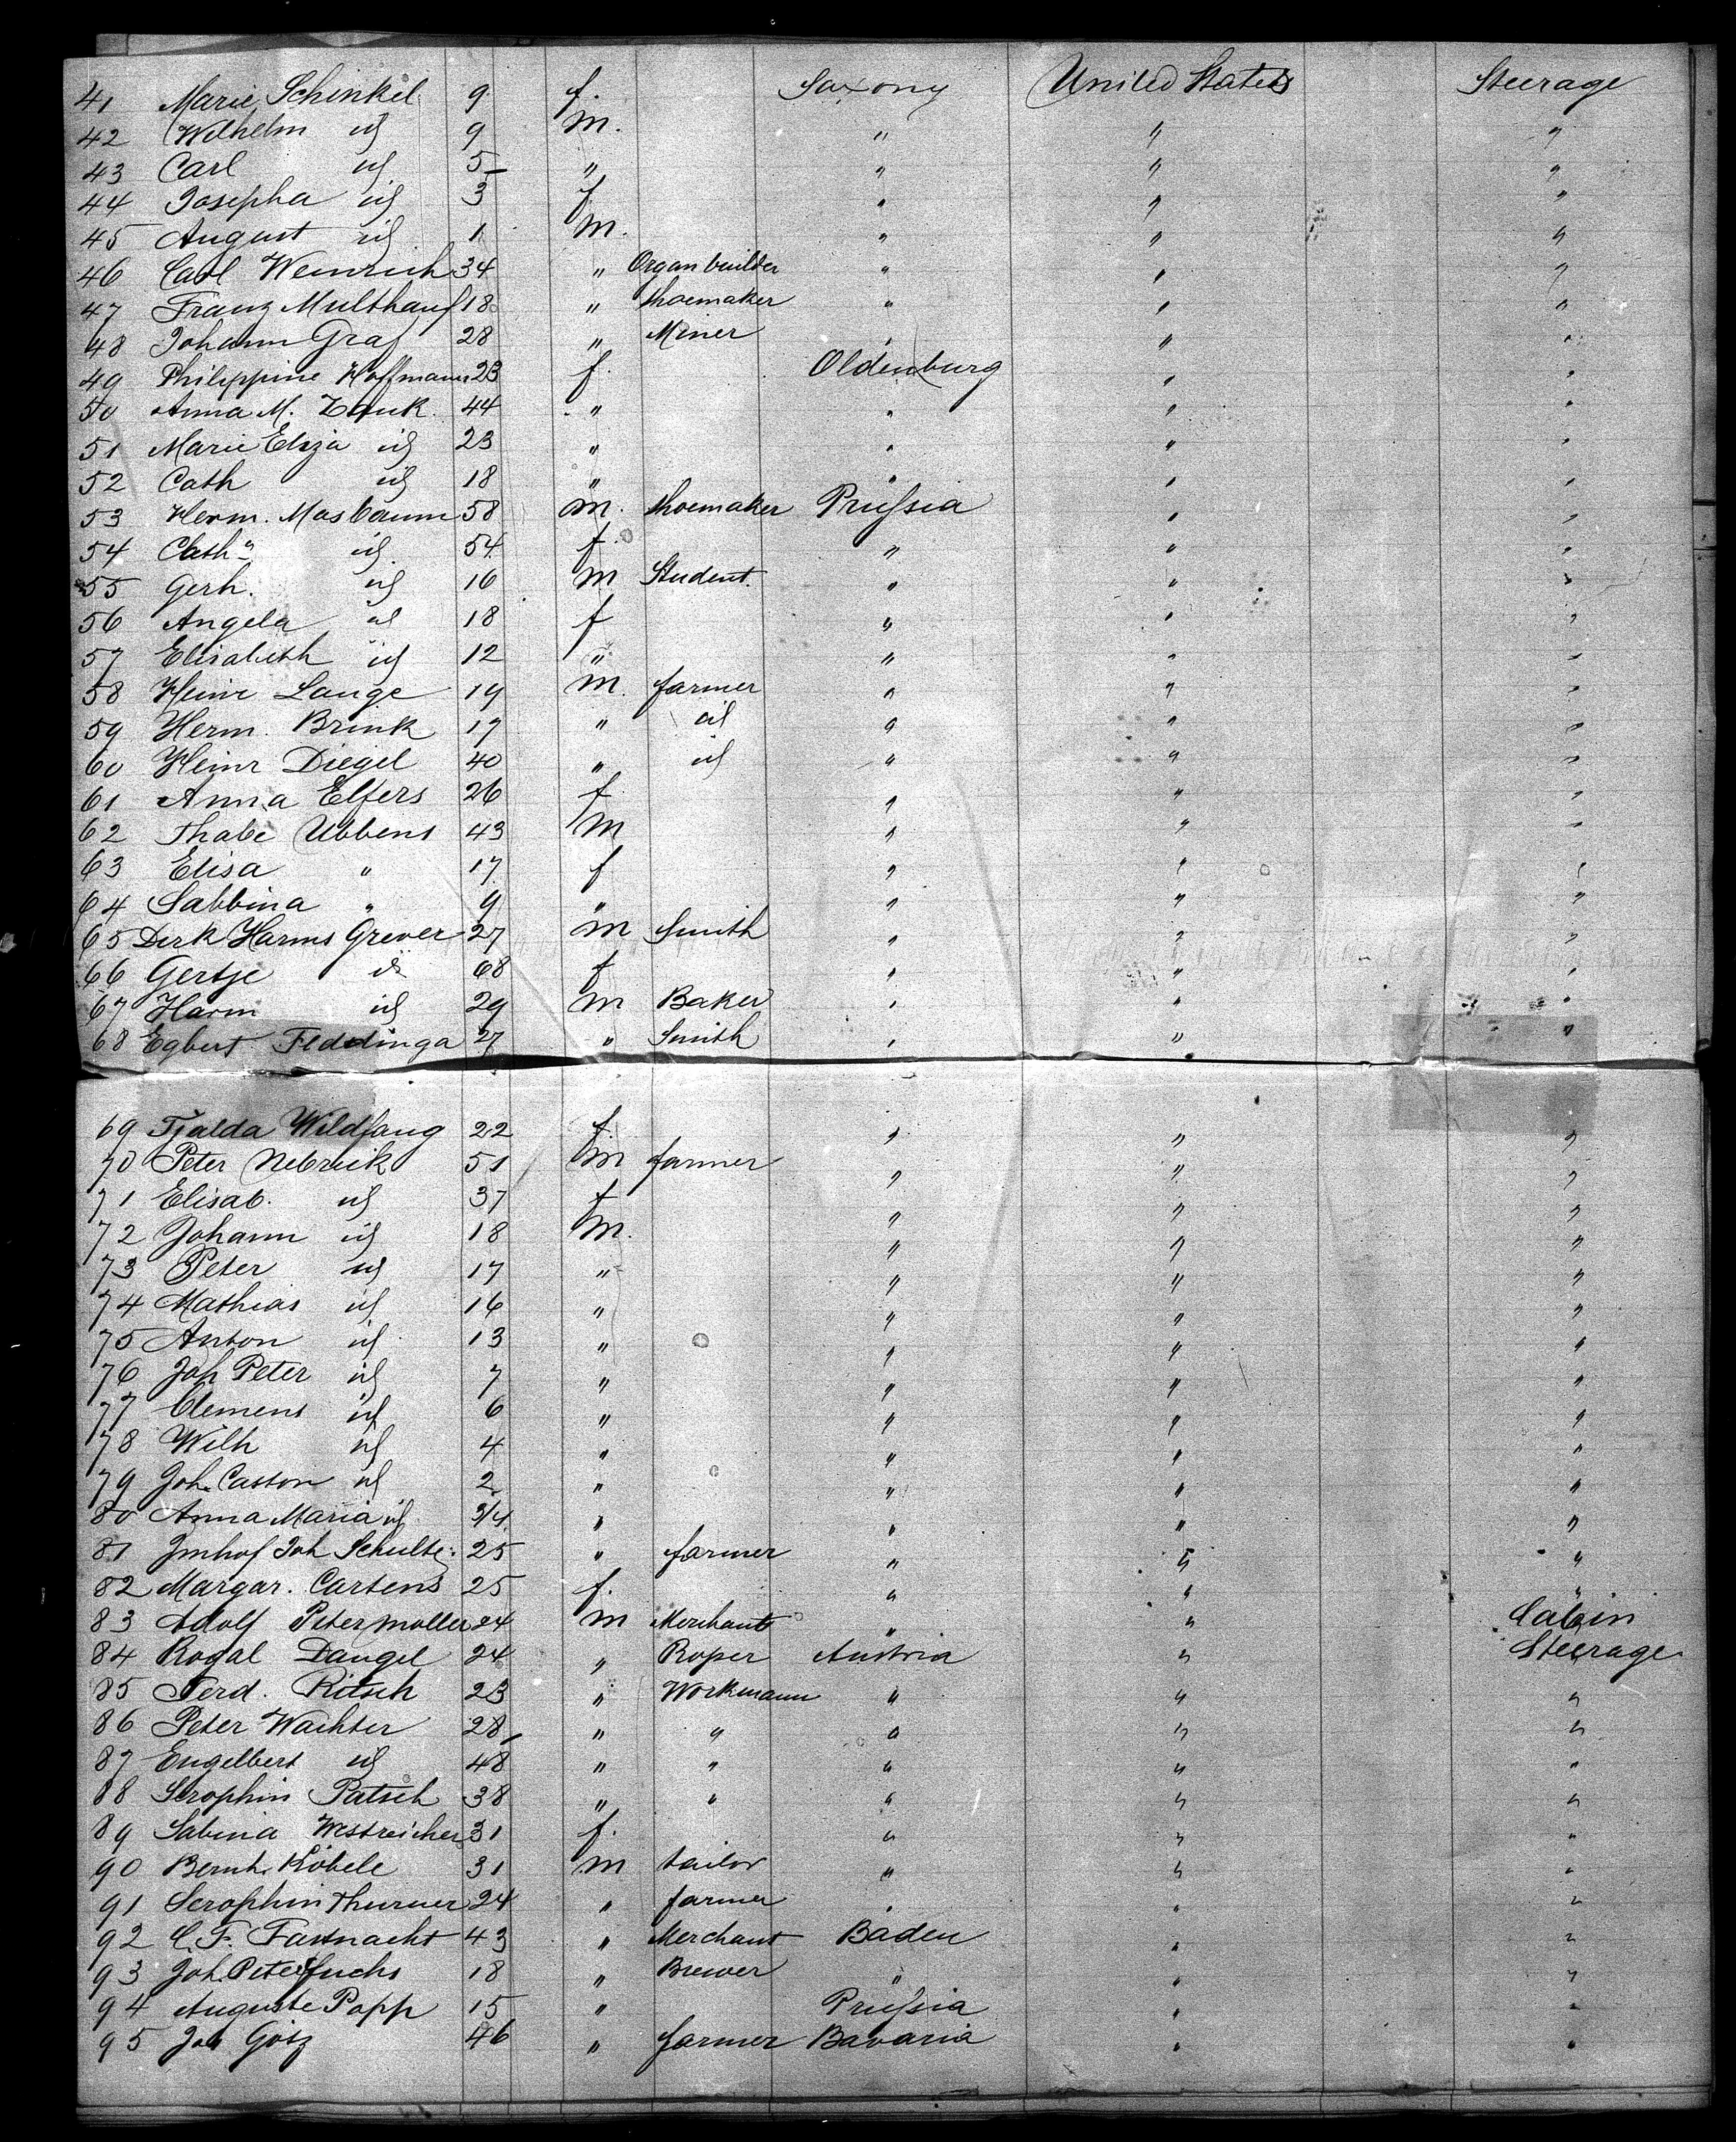 41 Marie Schinkel 9 f. Saxony United States Steerage
42 Wilhelm id 9 m. " " "
43 Carl id 5 " " " "
44 Josepha id 3 f " " "
45 August id 1 m. " " "
46 Carl Weinrich 34 " Organbuilder " " "
47 Franz Multhauf 18 " Shoemaker " " "
48 Johann Graf 28 " Miner " " "
49 Philippine Hoffmann 23 f. Oldenburg " "
50 Anna M. Zauk 44 " " " "
51 Marie Eliza id 23 " " " "
52 Cath id 18 " " " "
53 Herm. Masbaum 58 m. Shoemaker Prussia " "
54 Cath" id 54 f. " " "
55 Gerh. id 16 m Student. " " "
56 Angela id 18 f " " "
57 Elisabeth id 12 " " " "
58 Heinr Lange 19 m. farmer " " "
59 Herm. Brink 17 " id " " "
60 Heinr Diegel 40 " id " " "
61 Anna Elfers 26 f " " "
62 Thabe Ubbens 43 m " " "
63 Elisa " 17 f " " "
64 Sabbina " 9 " " " "
65 Derk Harms Grever 27 m Smith " " "
66 Gertje id 68 f " " "
67 Harm id 29 m Baker " " "
68 Egbert Feddinga 27 " Smith " " "
69 Tjalda Wildfang 22 f. " " "
70 Peter Nebrick 51 m farmer " " "
71 Elisab. id 37 f " " "
72 Johann id 18 m. " " "
73 Peter id 17 " " " "
74 Mathias id 16 " " " "
75 Anton id 13 " " " "
76 Joh Peter id 7 " " " "
77 Clemens id 6 " " " "
78 Wilh id 4 " " " "
79 Joh. Caston id 2 " " " "
80 Anna Maria id 3/4 " " " "
81 Imhof Joh Schulte 25 " farmer " " "
82 Margar. Carsens 25 f. " " "
83 Adolf Petermoller 24 m Merchant " " Cabin
84 Rogal Dangel 24 " Roper Austria " Steerage
85 Ferd. Ritsch 23 " Workmann " " "
86 Peter Wachter 28 " " " " "
87 Engelbert id 48 " " " " "
88 Seraphin Patsch 38 " " " " "
89 Sabina Westreicher 31 f. " " "
90 Bernh. Köbele 31 m tailor " " "
91 Seraphin Thurner 24 " farmer " " "
92 C. F. Fastnacht 43 " Merchant Baden " "
93 Joh. Peter Fuchs 18 " Brewer " " "
94 Auguste Popp 15 " Prussia " "
95 Joh Götz 46 " farmer Bavaria " "